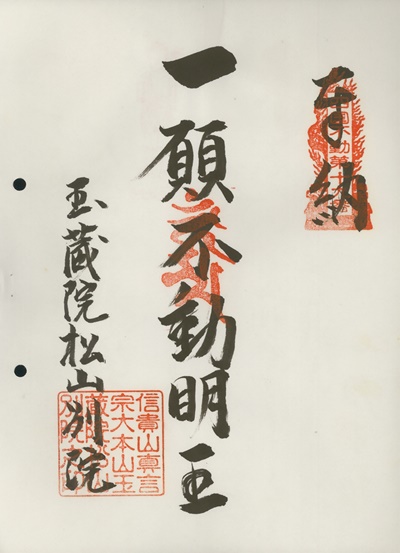 奉納
一願不動明王
玉蔵院松山別院
信貴山真言
宗大本山玉
蔵院松山
別院